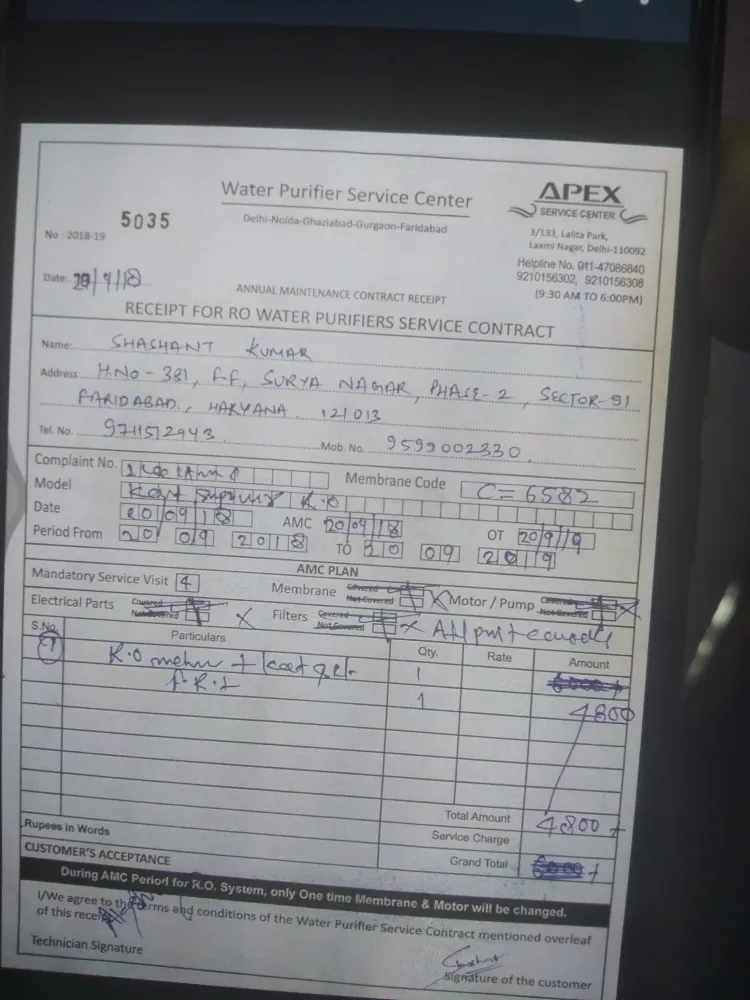 Water Purifier Service Center
Delhi-Noida-Ghaziabad-Gurgaon-Faridabad
APEX
SERVICE CENTER
3/133, Lalita Park,
Laxmi Nagar, Delhi-110092
Helpline No. 011-47086840
9210156302, 9210156308
(9:30 AM TO 6:00PM)
5035
No : 2018-19
Date:
ANNUAL MAINTENANCE CONTRACT RECEIPT
RECEIPT FOR RO WATER PURIFIERS SERVICE CONTRACT
Name: SHASHANT KUMAR
Address H.NO - 381, F.F, SURYA NAGAR, PHASE-2, SECTOR-91
FARIDABAD, HARYANA. 121013
Tel. No. 9711512943 Mob. No. 9599002330
Complaint No. Membrane Code C = 6582
Model Kent R.O
Date 20/09/18 AMC 20/09/18 OT 20/9/19
Period From 20 09 2018 TO 20 09 2019
AMC PLAN
Mandatory Service Visit 4 Membrane Covered Not Covered Motor / Pump Covered Not Covered
Electrical Parts Covered Not Covered Filters Covered Not Covered All part
S.No. Particulars Qty. Rate Amount
1 R.O + 1
1 4800
Total Amount 4800
Rupees in Words Service Charge
CUSTOMER'S ACCEPTANCE Grand Total
During AMC Period for R.O. System, only One time Membrane & Motor will be changed.
I/We agree to the terms and conditions of the Water Purifier Service Contract mentioned overleaf
of this receipt
Technician Signature Signature of the customer